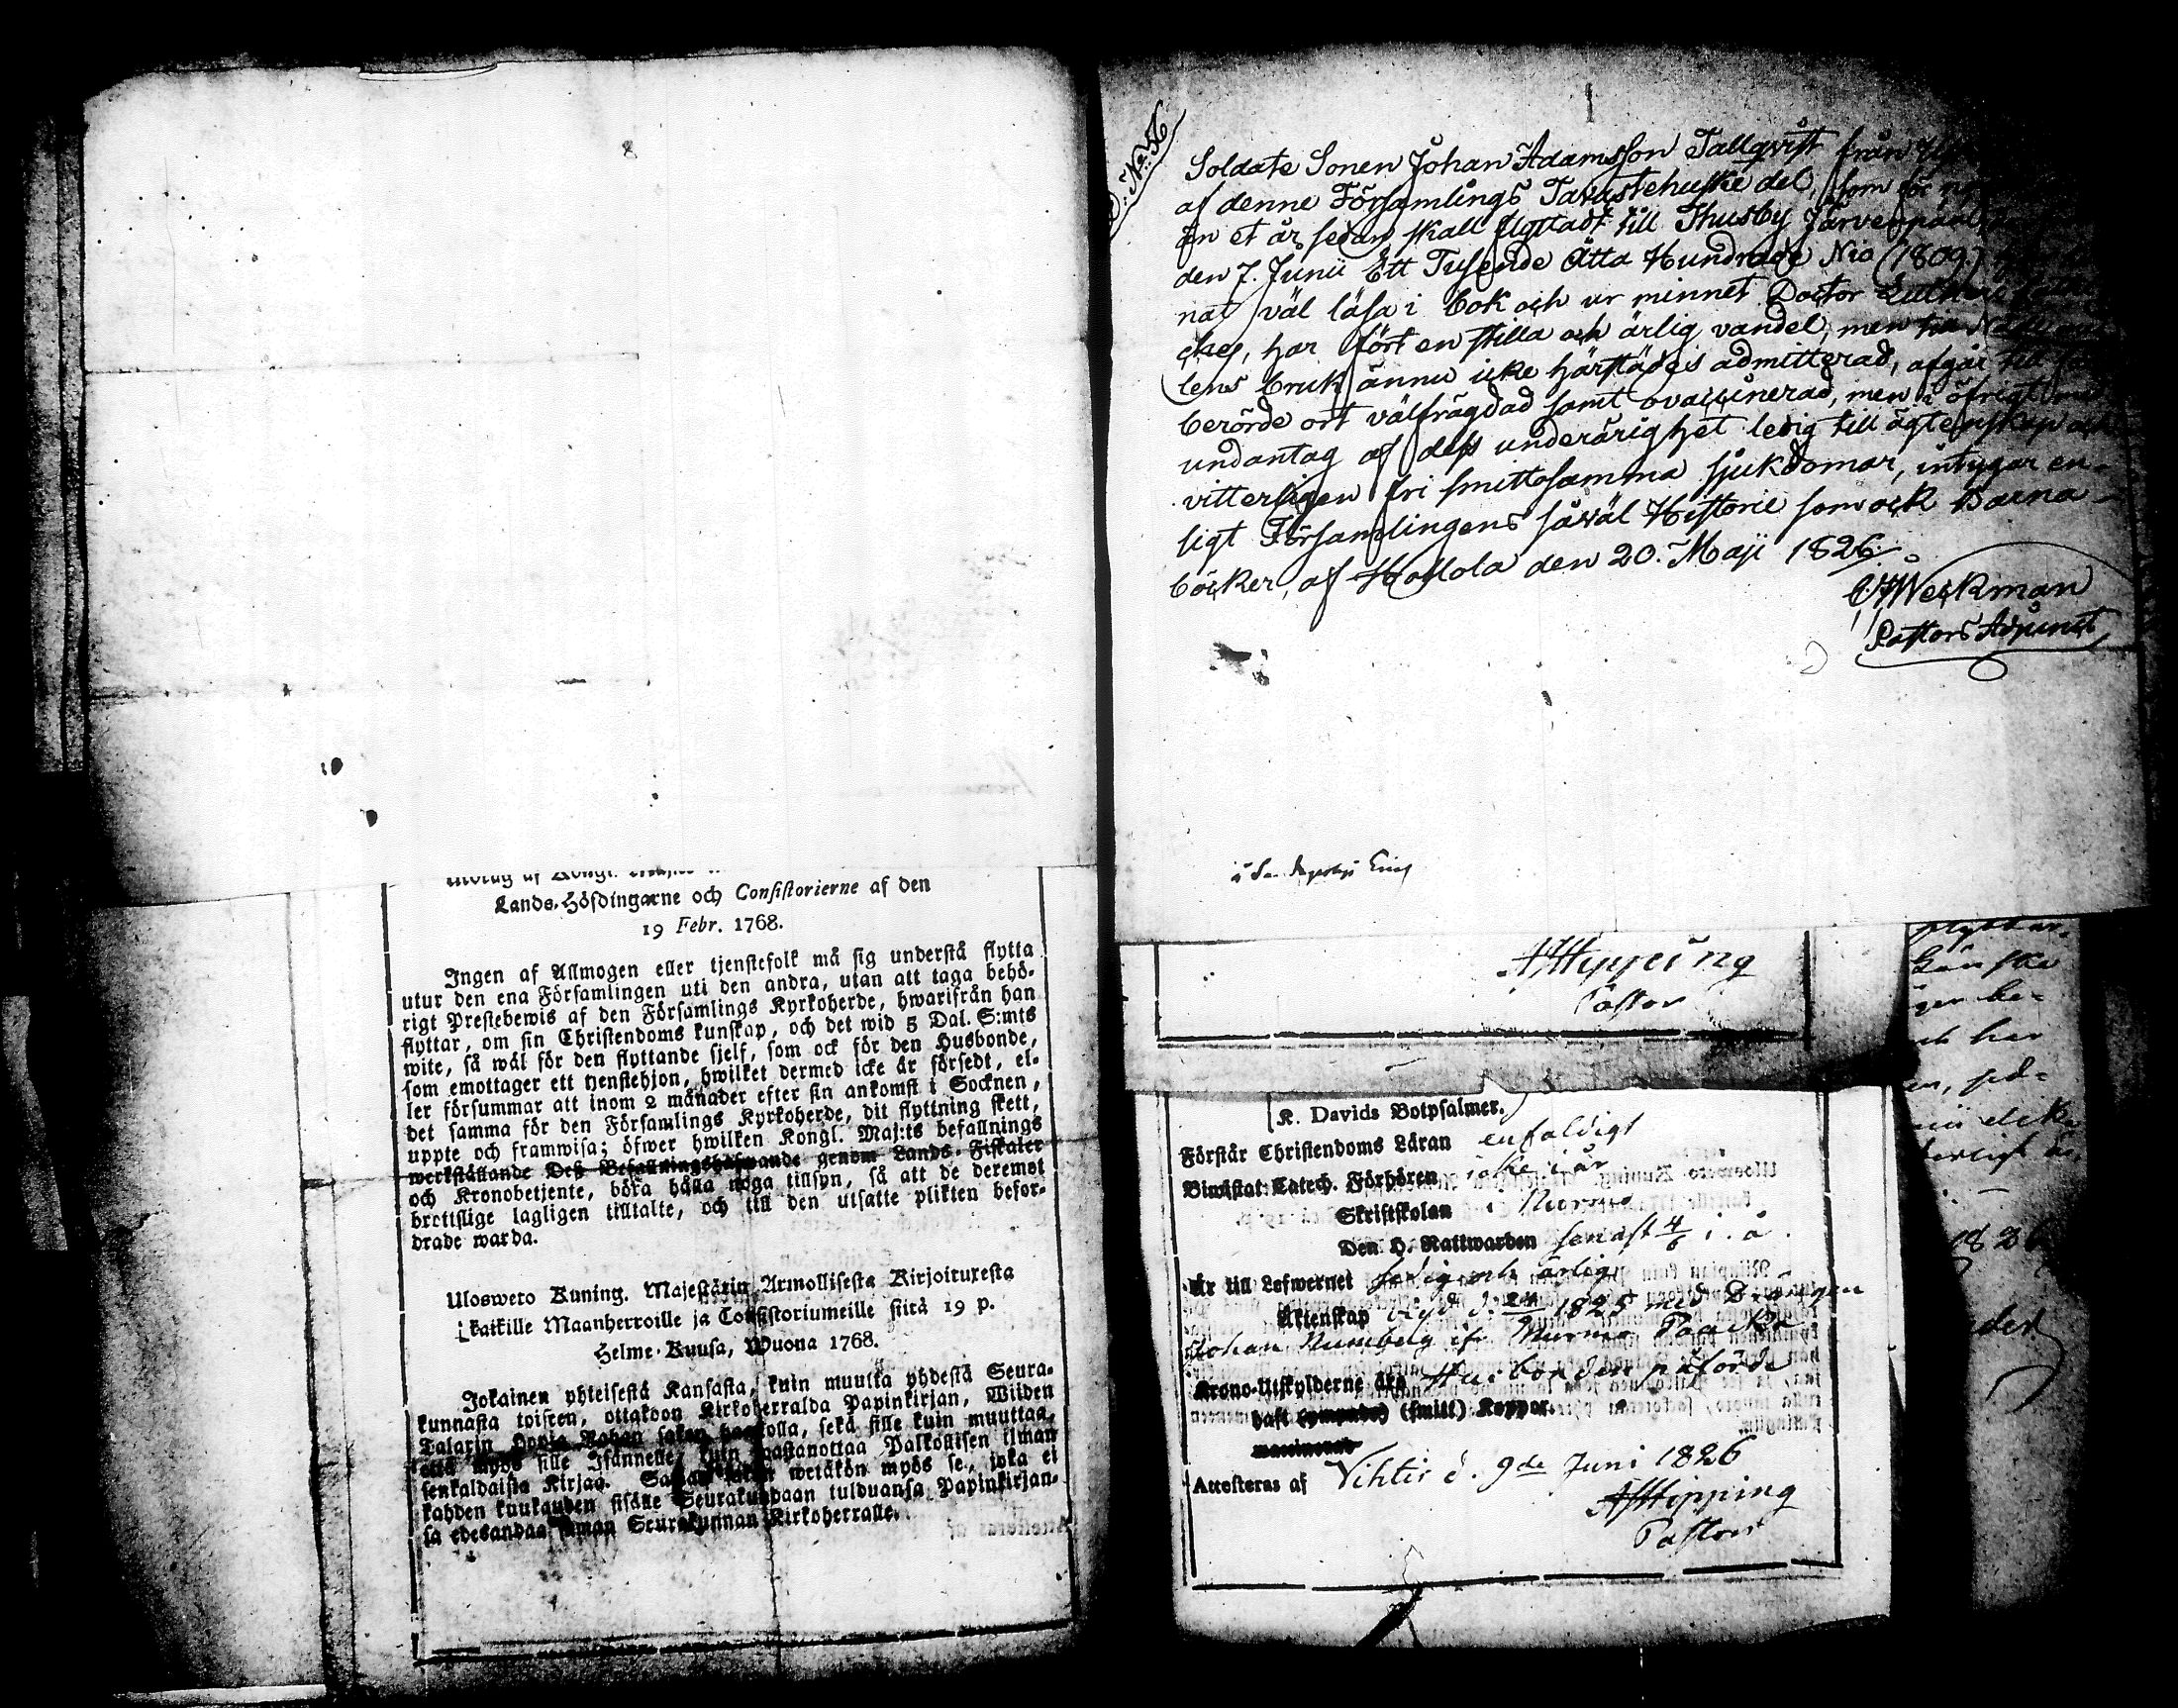 Lands-Höfdingarne och Consistorierne af den
19 Febr. 1768.
Ingen af Allmogen eller tjenstefolk må sig understå flytta
utur den ena Församlingen uti den andra, utan att taga behö-
rigt Prestebewis af den Församlings Kyrkoherde, hwarifrån han
flyttar, om sin Christendoms kunskap, och det wid 5 Dal. S:mts
wite, så wäl för den flyttande sjelf, som ock för den Husbonde,
som emottager ett tjenstehjon, hwilket dermed icke är försedt, el-
ler försummar att inom 2 månader efter sin ankomst i Socknen,
det samma för den Församlings Kyrkoherde, dit flyttning skett,
uppte och framwisa; öfwer hwilken Kongl. Maj:ts befallnings
werkställande Deß Befallningshafwande genom Lands-Fiskaler
och Kronobetjente, böra hålla noga tillsyn, så att de deremot
brottslige lagligen tilltalte, och till den utsatte plikten befor-
drade warda.
Uloswето Kuning. Majestätin Armollisesta Kirjoituxesta
kaikille Maanherroille ja Consistoriumeille siitä 19 p.
Helme-Kuusa, Wuona 1768.
Jokainen yhteisestä Kansasta, kuin muutta yhdestä Seura-
kunnasta toiseen, ottakoon Kirkoherralda Papinkirjan, Wiiden
Talarin Hopia Rahan sakon haastolla, sekä sille kuin muuttaa,
että myös sille Isännelle, kuin wastanottaa Palkollisen ilman
senkaldaista Kirjaa. wetäkön myös se, joka ei
kahden kuukauden sisälle Seurakundaan tulduansa Papinkirjan-
sa edesandaa saman Seurakunnan Kirkoherralle.
No 56
Soldate Sonen Johan Adamsson Tallqvist från
af denne Församlings Tavastehuske del, som för
än et år sedan skall flyttadt till Thusby Järvenpää
den 7. Junii Ett Tusende Åtta Hundrade Nio (1809.)
nat väl läsa i bok och ur minnet Doctor Lutheri
ches, har fört en stilla och ärlig vandel, men till
lens bruk ännu icke härstädes admitterad, afgår till
berörde ort välfrägdad samt ovaccinerad, men i öfrigt med
undantag af dess underårighet ledig till ägtenskap och
vitterligen fri smittosamma sjukdomar, intygar en-
ligt Församlingens såväl Historie som ock Barna-
böcker, af Hollola den 20. Maji 1826.
Weckman
Pastors Adjunct
Hipping
Pastor
K. Davids Botpsalmer.
Förstår Christendoms Läran enfaldigt
Biwistat Catech. Förhören icke i år
Skriftskolan i Nurmo
Den H. Nattwarden senast 4/6 i. å.
Är till Lefwernet sedig och ärlig
Äktenskap vigd d. 24 1825 med Drängen
Johan Numberg ifr. Nurmo Paacka
Krono-Utskylderne äro Husbonden påförde
haft (ympade) (smitt) Koppor.
vaccinerad
Attesteras af Vihtis d. 9de Juni 1826
Hipping
Pastor
1826